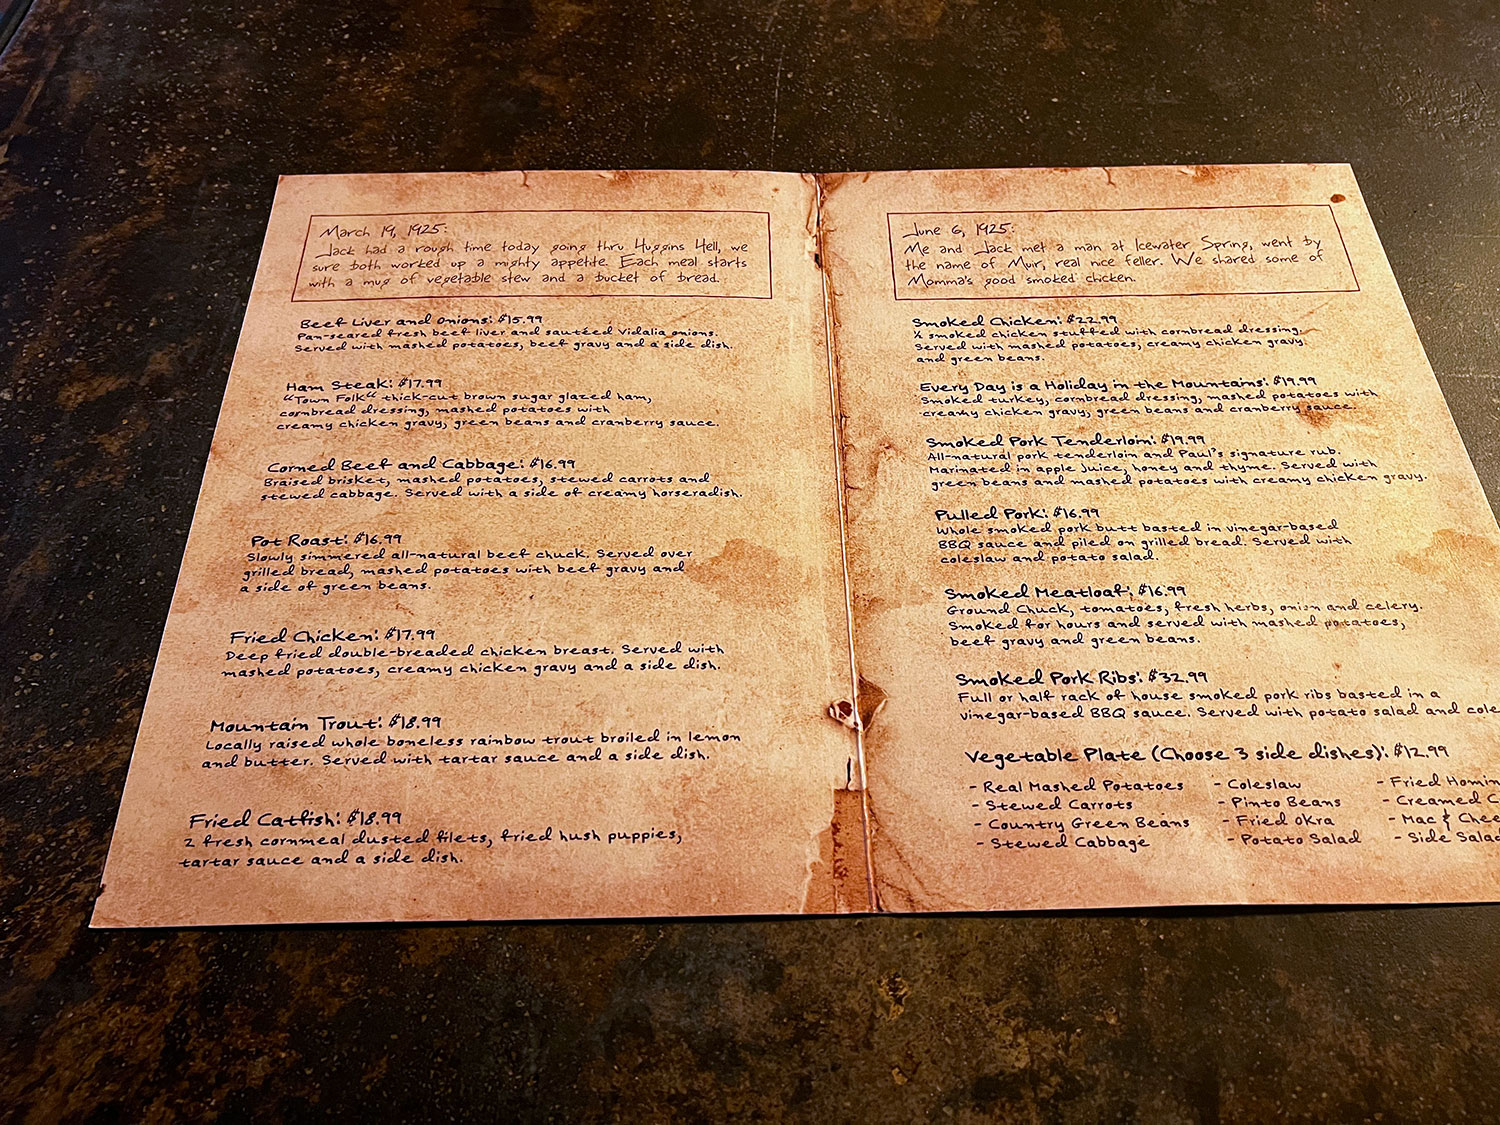 March 19, 1925:
Jack had a rough time today going thru Huggins Hell, we
sure both worked up a mighty appetite. Each meal starts
with a mug of vegetable stew and a bucket of bread.
Beef Liver and Onions: $15.99
Pan-seared fresh beef liver and sautéed Vidalia onions.
Served with mashed potatoes, beef gravy and a side dish.
Ham Steak: $17.99
“Town Folk“ thick-cut brown sugar glazed ham,
cornbread dressing, mashed potatoes with
creamy chicken gravy, green beans and cranberry sauce.
Corned Beef and Cabbage: $16.99
Braised brisket, mashed potatoes, stewed carrots and
stewed cabbage. Served with a side of creamy horseradish.
Pot Roast: $16.99
Slowly simmered all-natural beef chuck. Served over
grilled bread, mashed potatoes with beef gravy and
a side of green beans.
Fried Chicken: $17.99
Deep fried double-breaded chicken breast. Served with
mashed potatoes, creamy chicken gravy and a side dish.
Mountain Trout: $18.99
Locally raised whole boneless rainbow trout broiled in lemon
and butter. Served with tartar sauce and a side dish.
Fried Catfish: $18.99
2 fresh cornmeal dusted filets, fried hush puppies,
tartar sauce and a side dish.
June 6, 1925:
Me and Jack met a man at Icewater Spring, went by
the name of Muir, real nice feller. We shared some of
Momma's good smoked chicken.
Smoked Chicken: $22.99
½ smoked chicken stuffed with cornbread dressing.
Served with mashed potatoes, creamy chicken gravy
and green beans.
Every Day is a Holiday in the Mountains: $19.99
Smoked turkey, cornbread dressing, mashed potatoes with
creamy chicken gravy, green beans and cranberry sauce.
Smoked Pork Tenderloin: $19.99
All-natural pork tenderloin and Paul's signature rub.
Marinated in apple juice, honey and thyme. Served with
green beans and mashed potatoes with creamy chicken gravy.
Pulled Pork: $16.99
Whole smoked pork butt basted in vinegar-based
BBQ sauce and piled on grilled bread. Served with
coleslaw and potato salad.
Smoked Meatloaf: $16.99
Ground Chuck, tomatoes, fresh herbs, onion and celery.
Smoked for hours and served with mashed potatoes,
beef gravy and green beans.
Smoked Pork Ribs: $32.99
Full or half rack of house smoked pork ribs basted in a
vinegar-based BBQ sauce. Served with potato salad and cole
Vegetable Plate (Choose 3 side dishes): $12.99
- Real Mashed Potatoes - Coleslaw - Fried Homin
- Stewed Carrots - Pinto Beans - Creamed C
- Country Green Beans - Fried Okra - Mac & Chee
- Stewed Cabbage - Potato Salad - Side Salad